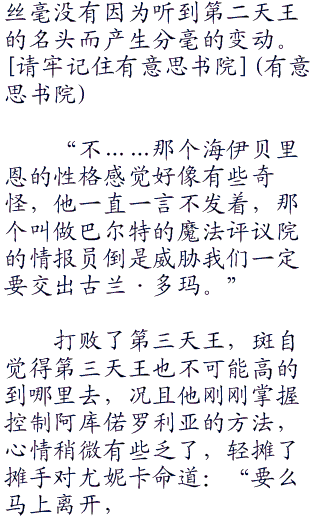 丝毫没有因为听到第二天王
的名头而产生分毫的变动。
[请牢记住有意思书院] (有意
思书院)
“不……那个海伊贝里
恩的性格感觉好像有些奇
怪，他一直一言不发着，那
个叫做巴尔特的魔法评议院
的情报员倒是威胁我们一定
要交出古兰·多玛。”
打败了第三天王，斑自
觉得第三天王也不可能高的
到哪里去，况且他刚刚掌握
控制阿库偌罗利亚的方法，
心情稍微有些乏了，轻摊了
摊手对尤妮卡命道：“要么
马上离开，